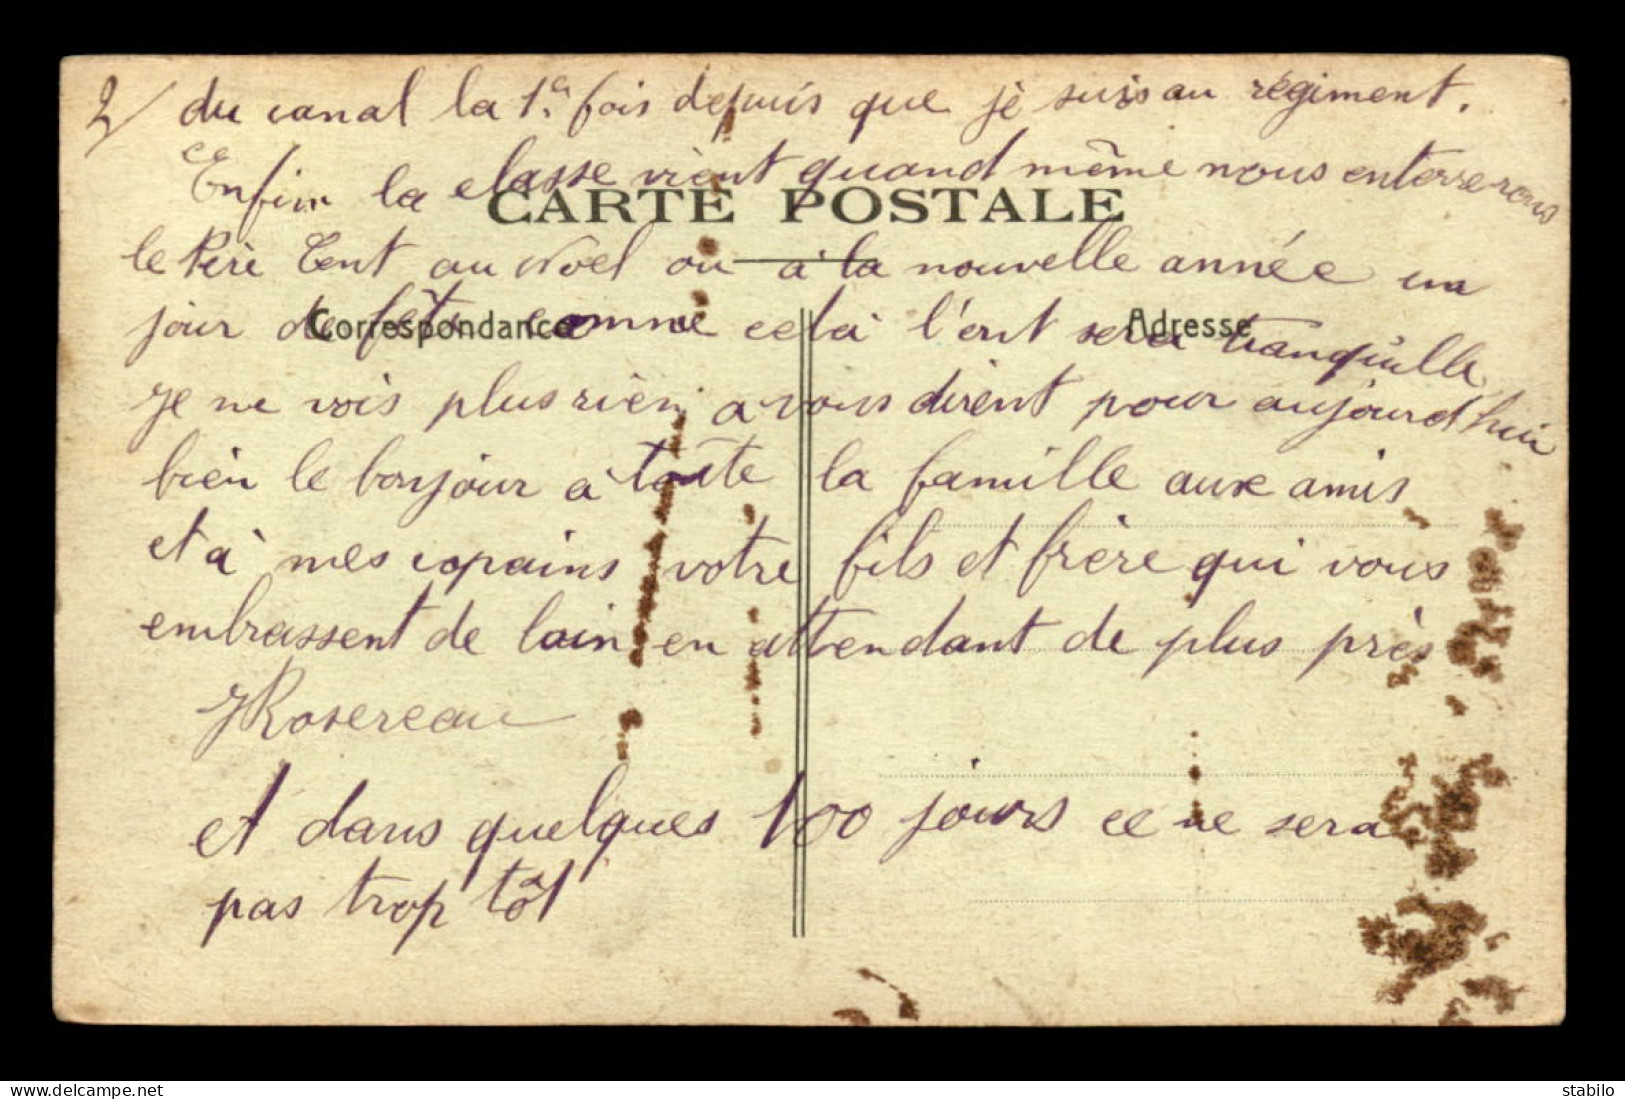 2/ du canal la 1e. fois depuis que je suis au régiment.
Enfin la classe vient quand même nous enterrerons
CARTE POSTALE
le Père Cent au Noel ou à la nouvelle année un
jour de fête comme celà l'ent sera tranquille
Correspondance
Adresse
Je ne vois plus rien a vous dirent pour aujourd'hui
bien le bonjour à toute la famille aux amis
et à mes copains votre fils et frère qui vous
embrassent de loin en attendant de plus près
JRosereau
et dans quelques 100 jours ce ne sera
pas trop tôt
stabilo